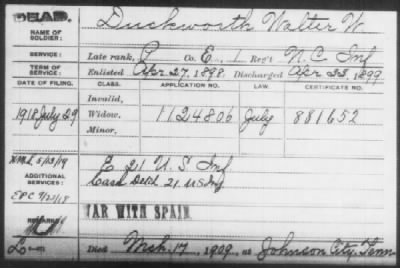 DEAD.
NAME OF SOLDIER: Duckworth Walter W
SERVICE: Late rank, P Co. E, 1 Reg't N.C. Inf
TERM OF SERVICE: Enlisted Apr 27, 1898. Discharged Apr 23, 1899
DATE OF FILING. CLASS. APPLICATION NO. LAW. CERTIFICATE NO.
Invalid,
1918 July 29 Widow, 1124806 July 881652
Minor,
5/13/19 E 21 U.S. Inf
ADDITIONAL SERVICES: Cas Detch 21 U.S. Inf
EPC
WAR WITH SPAIN.
REMARKS:
Died Mch. 17, 1909, at Johnson City, Tenn